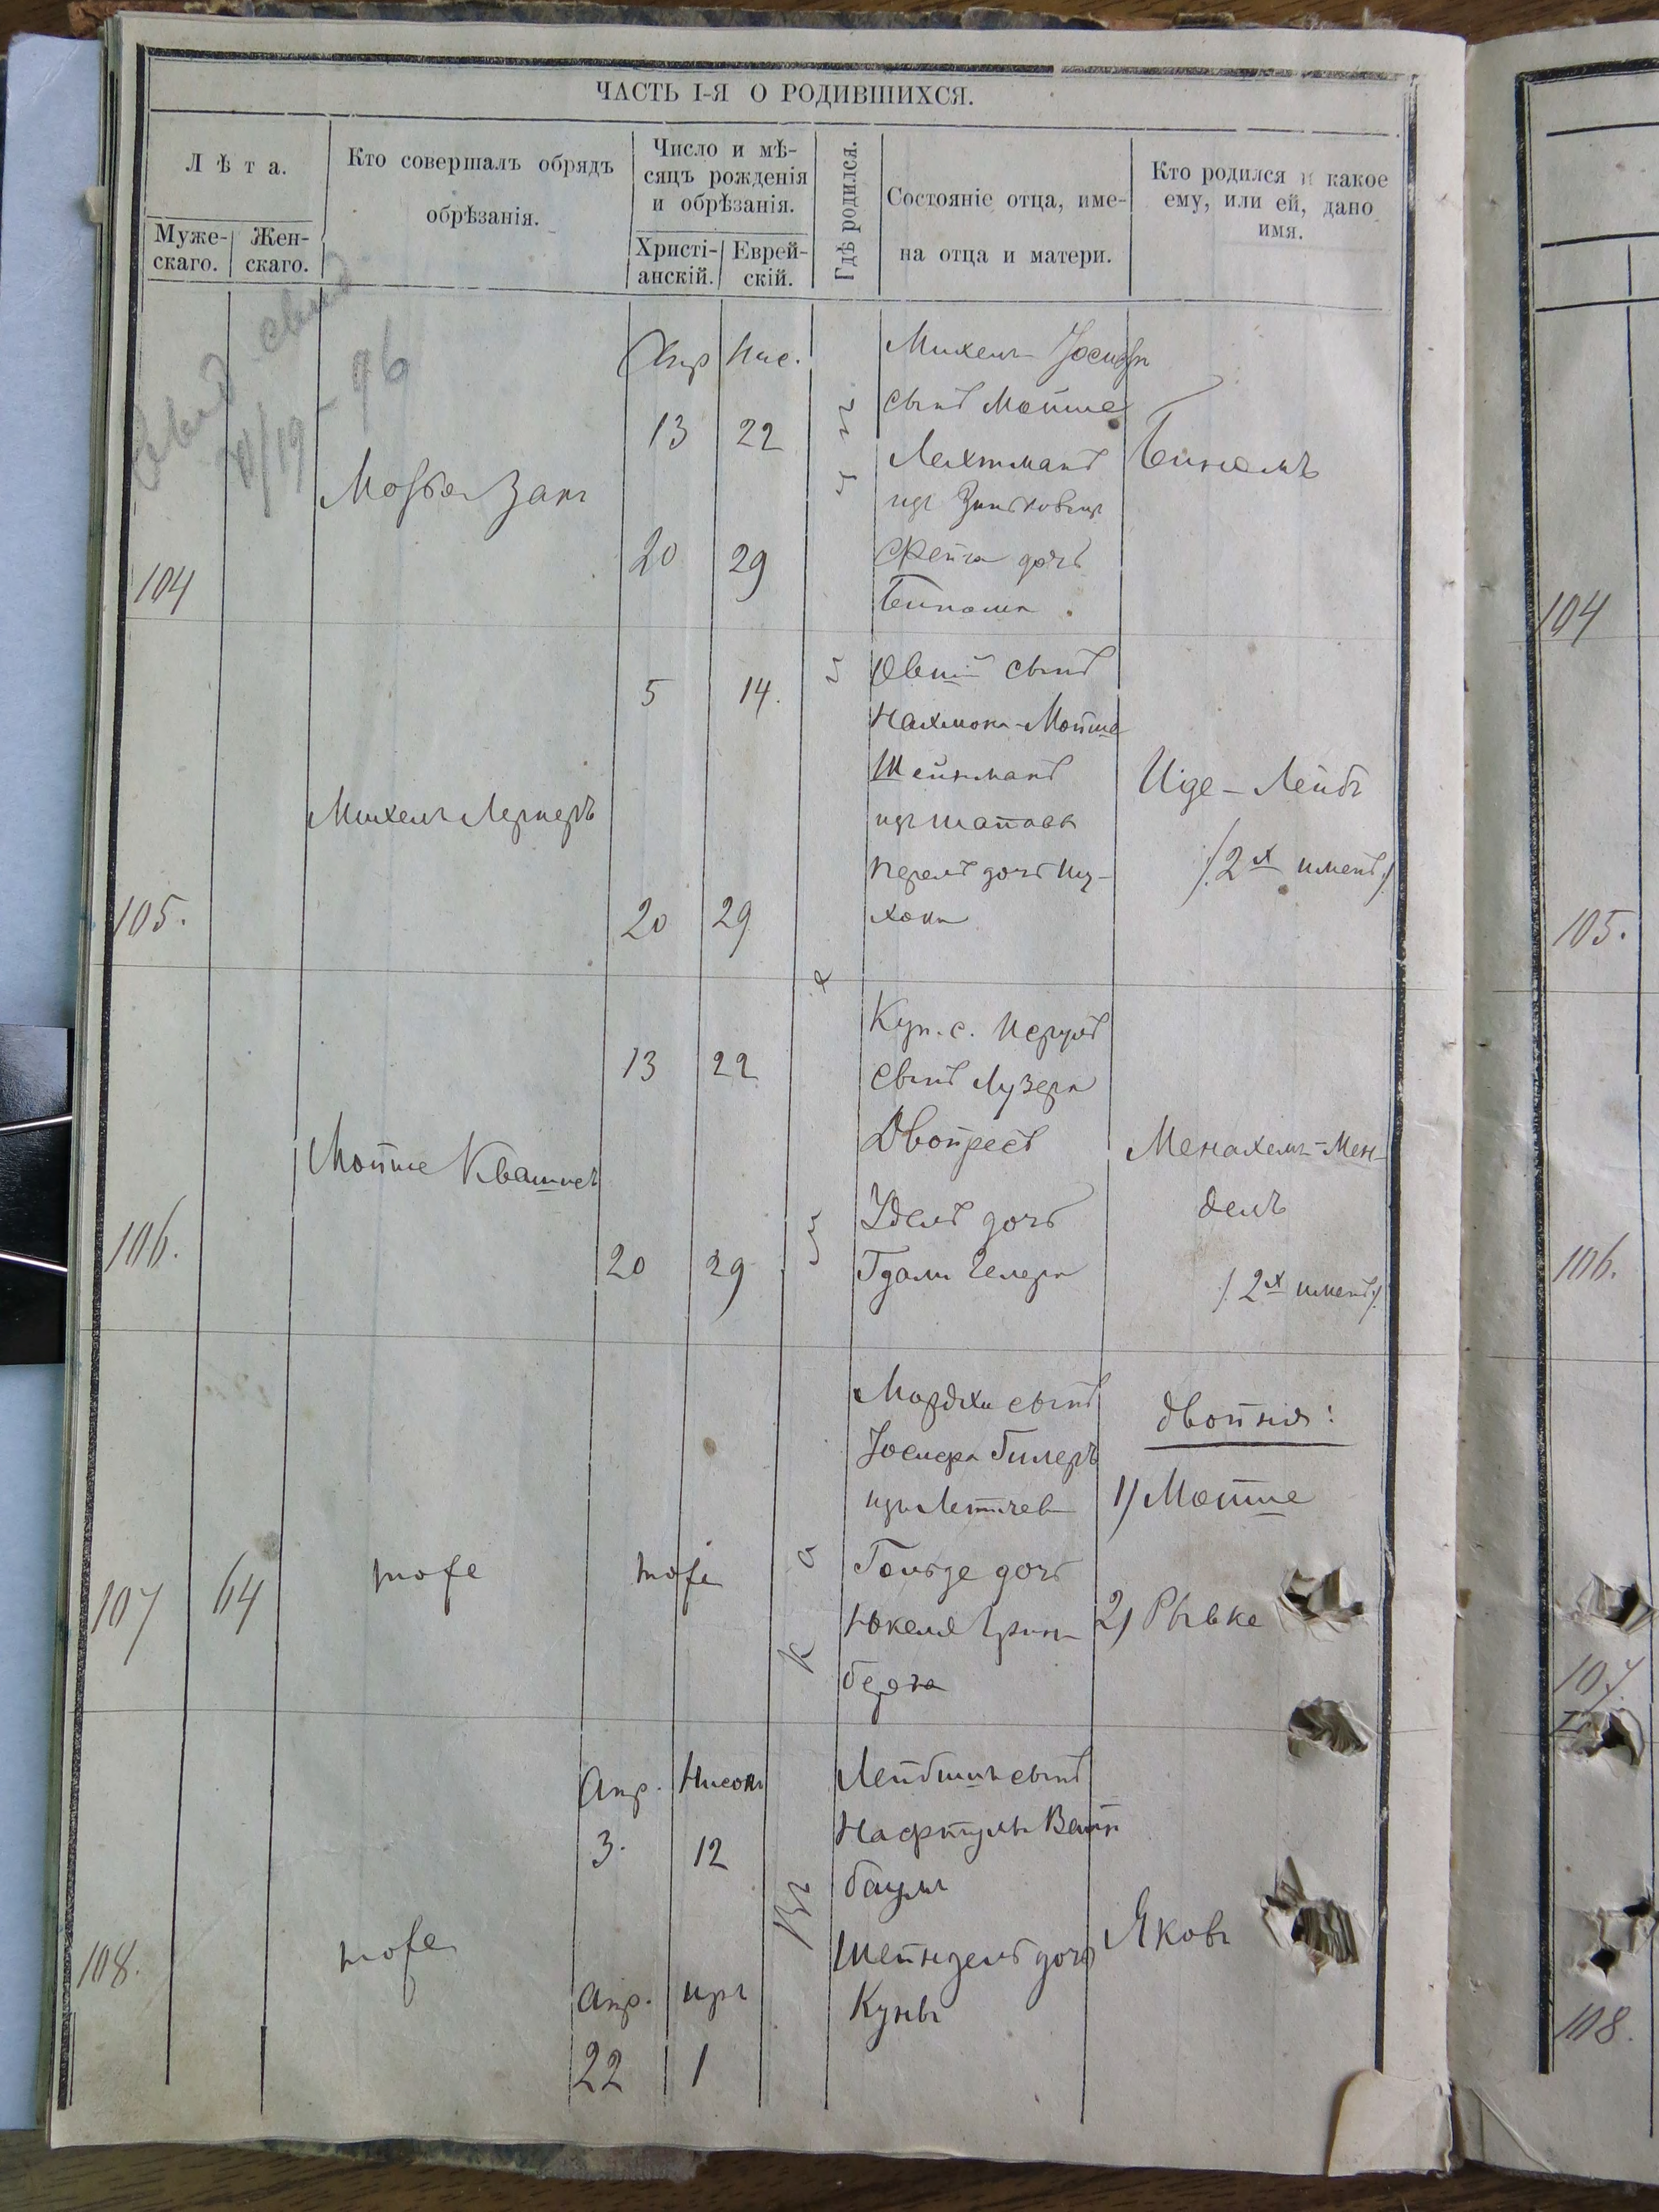 ЧАСТЬ I-Я О РОДИВШИХСЯ.
Лѣта.
Муже-
скаго.
Жен-
скаго.
Кто совершалъ обрядъ
обрѣзанія.
Число и мѣ-
сяцъ рожденія
и обрѣзанія.
Христі-
анскій.
Еврей-
скій.
Гдѣ родился.
Состояніе отца, име-
на отца и матери.
Кто родился и какое
ему, или ей, дано
имя.
96
104
Закъ
Апр Нис.
13 22
20 29
Михель Іосифъ
сынъ Мойше
Лехтманъ
изъ Зиньковцы
Фейга дочь
Бинема
Бинемъ
105.
Михель Лернеръ
5 14.
20 29
Овшій сынъ
Нахмона-Мойше
Шейнманъ
изъ Шатавы
Перель дочь Иц-
хока
Иде-Лейбъ
/2х именъ/
106.
Мойше Квашисъ
13 22
20 29
Куп. с.
сынъ Лузера
Двойресъ
Удель дочь
Гдали Гелера
Менахемъ-Мен-
дель
/2х именъ/
107 64
тоже
тоже
Мордхи сынъ
Іосифа Гилеръ
изъ Летичев
Гольде дочь
Юкеля Грин-
берга
двойня:
1/ Мойше
2/ Рывке
108.
тоже
Апр. Нисонъ
3. 12
Апр. Иръ
22 1
Въ
Лейбишъ сынъ
Нафтулы Вайн
баумъ
Шейндель дочь
Куны
Яковъ
104
105.
106.
107.
108.